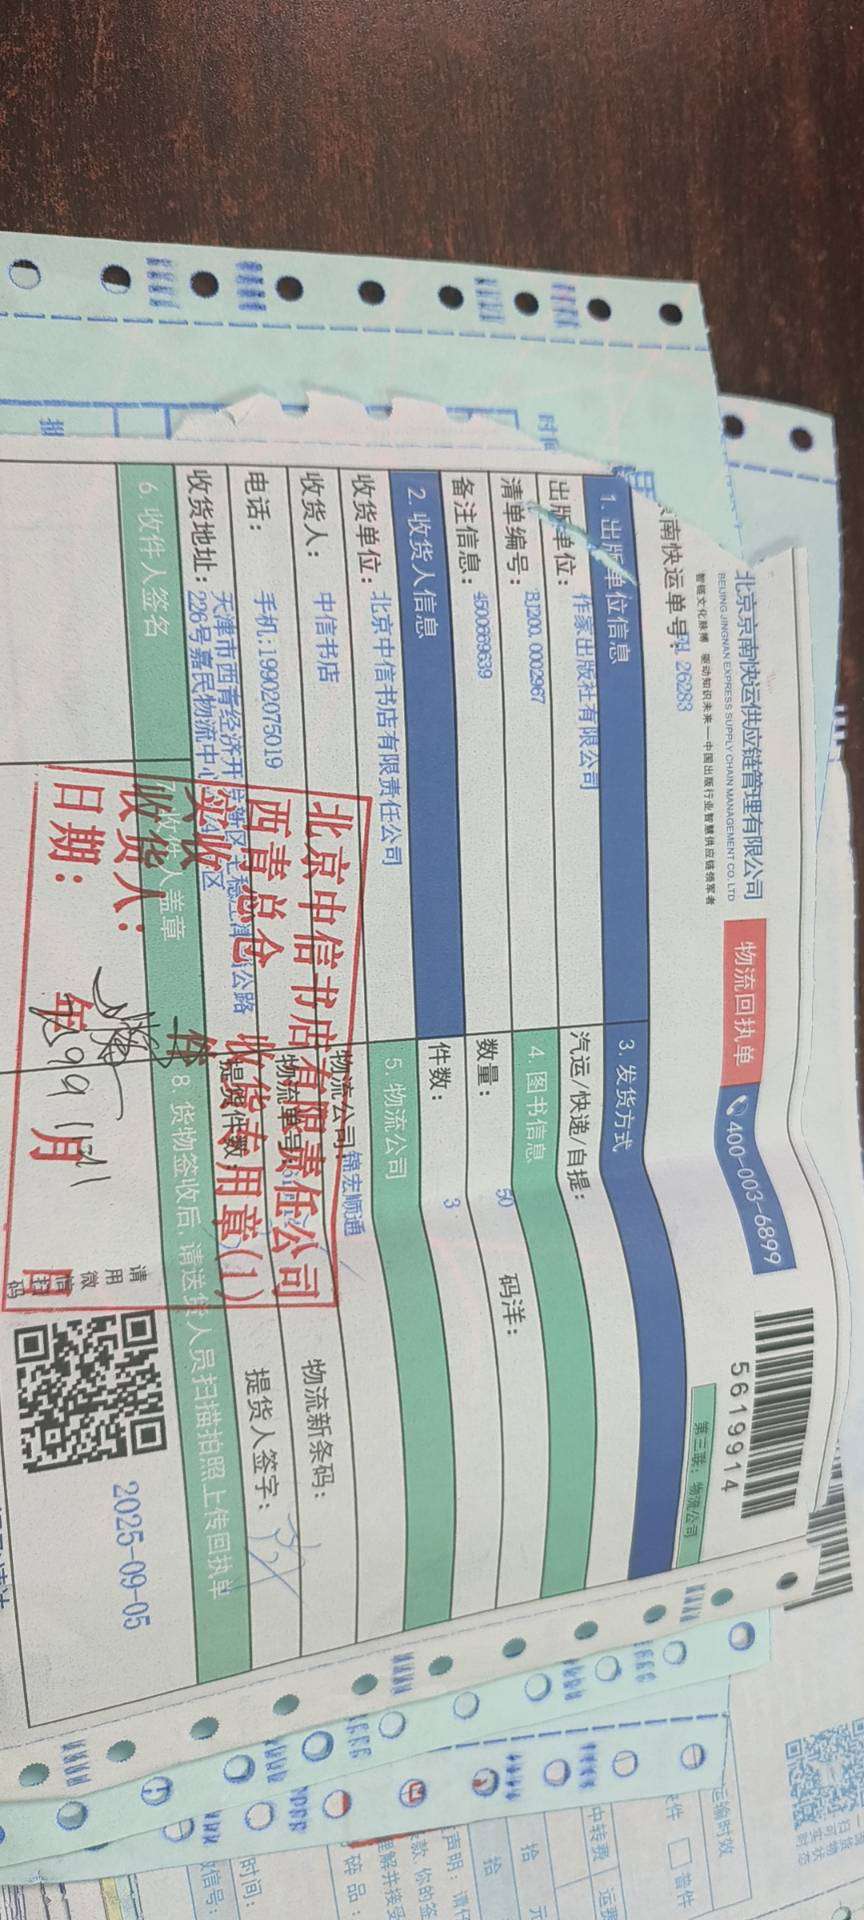 北京京南快运供应链管理有限公司
BEIJING JINGNAN EXPRESS SUPPLY CHAIN MANAGEMENT CO. LTD
智链文化脉搏 驱动知识未来—中国出版行业智慧供应链领军者
物流回执单
400-003-6899
5619914
南快运单号:
26283
第三联：物流公司
1. 出版单位信息
3. 发货方式
出版单位：
作家出版社有限公司
汽运/快递/自提：
清单编号：
BJ200.0002967
4. 图书信息
备注信息：
4500669639
数量：
50
码洋：
2. 收货人信息
件数：
3
收货单位：
北京中信书店有限责任公司
5. 物流公司
收货人：
中信书店
物流公司
锦宏顺通
电话：
手机:19902075019
物流单号
物流新条码：
收货地址：
天津市西青经济开
公路
226号嘉民物流中心
区
提货件数
提货人签字：
6. 收件人签名
7. 收件人盖章
8 货物签收后,请送货人员扫描拍照上传回执单
北京中信书店有限责任公司
西青总仓 收货专用章(1)
实收
件
收货人：
日期：
年
月
日
请
用
微
信
扫
码
2025-09-05
时间
运输时效
普件
中转费
运费
拾
元
拾
声明：
碎品：
时间：